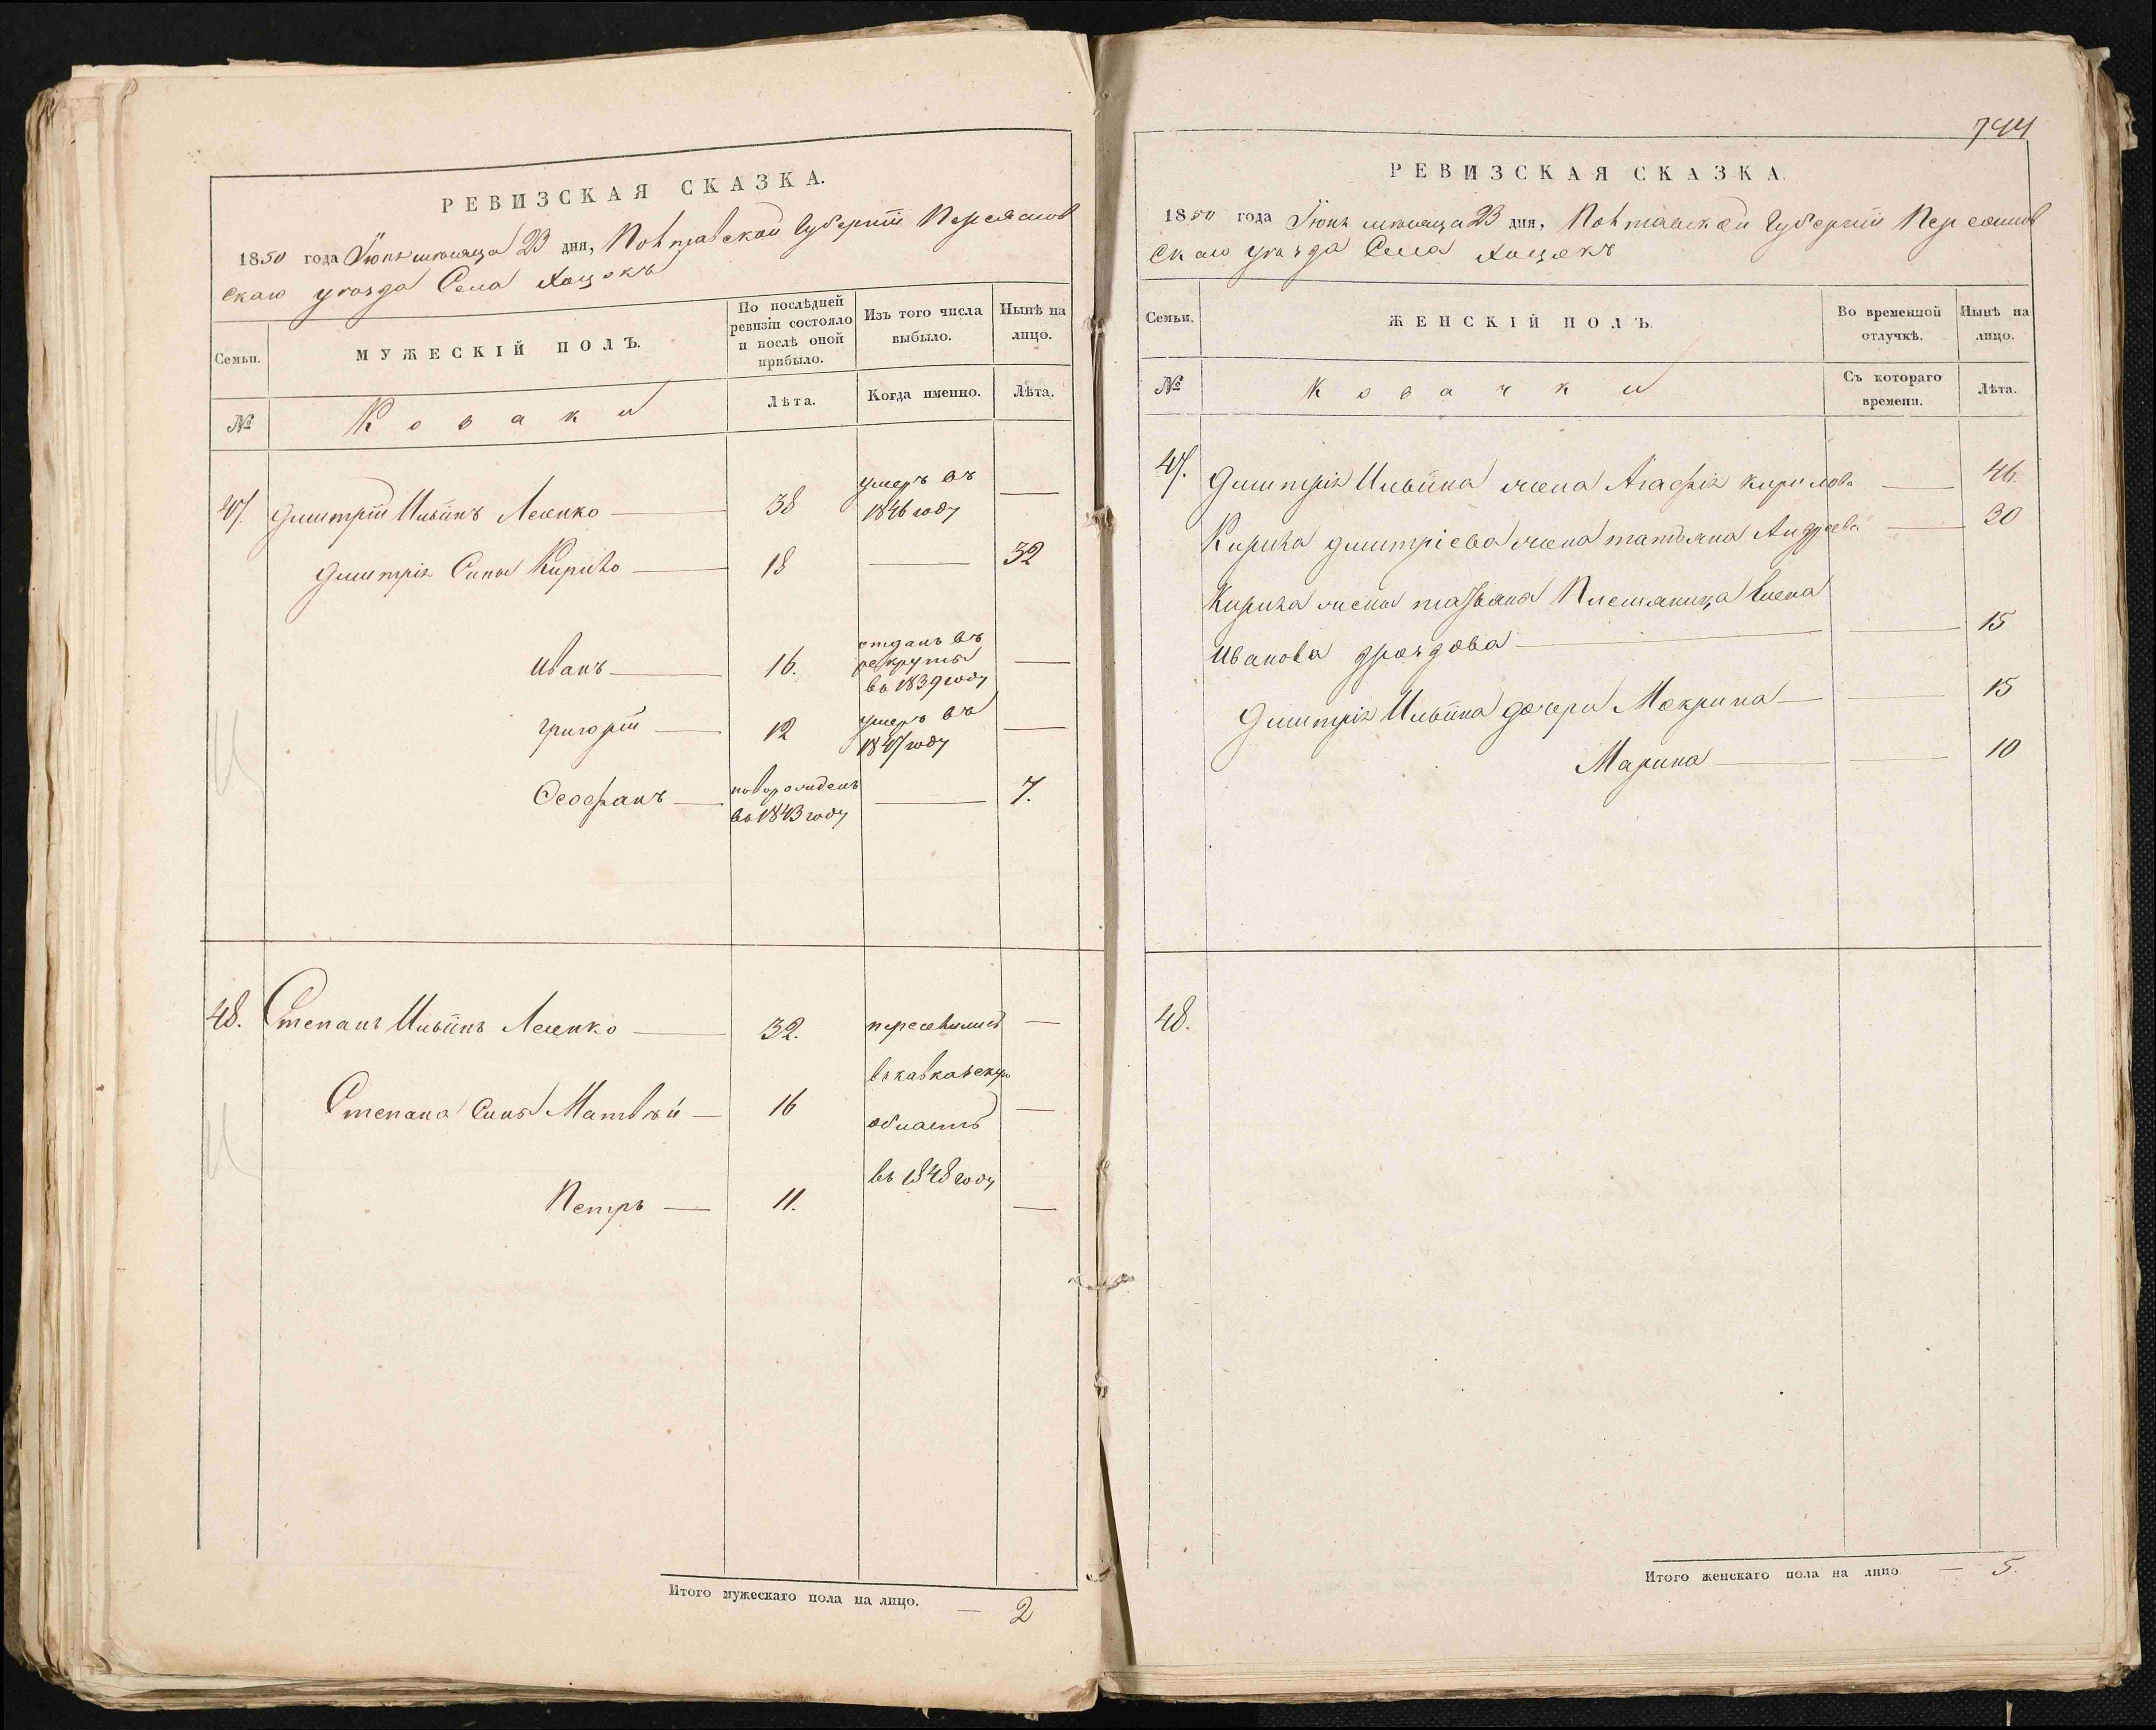 РЕВИЗСКАЯ СКАЗКА.
1850 года Іюня мѣсяца 23 дня, Полтавской Губерніи Переяслов
скаго уѣзда Села Хоцокъ
Семьи.
МУЖЕСКІЙ ПОЛЪ.
По послѣдней
ревизіи состояло
и послѣ оной
прибыло.
Изъ того числа
выбыло.
Нынѣ на
лицо.
№
Козаки
Лѣта.
Когда именно.
Лѣта.
47. Дмитрій Ильинъ Лесенко — 38 умеръ въ —
1846 году
Дмитрія Сыны Кирило — 18 — 32
Иванъ — 16. отданъ въ —
рекруты
въ 1839 году
Григорій — 12 умеръ въ —
1847 году
Феофанъ — новорожденъ — 7.
въ 1843 году
48. Степанъ Ильинъ Лесенко — 32. переселились —
въ кавказскую
Степана Сынъ Матвѣй — 16 —
область
въ 1848 году
Петръ — 11. —
Итого мужескаго пола на лицо. — 2
744
РЕВИЗСКАЯ СКАЗКА.
1850 года Іюня мѣсяца 23 дня, Полтавской Губерніи Переяслов
скаго уѣзда Села Хоцокъ
Семьи.
ЖЕНСКІЙ ПОЛЪ.
Во временной
отлучкѣ.
Нынѣ на
лицо.
№
Козачки
Съ котораго
времени.
Лѣта.
47. Дмитрія Ильина жена Агафія Кирилова — 46.
Кирила Дмитріева жена татьяна Андреева — 20
Кирила жены татьяны Племяница Елена
Иванова Дроздова — — 15
Дмитрія Ильина дочери Мокрина — — 15
Марина — — 10
48.
Итого женскаго пола на лицо. — 5.